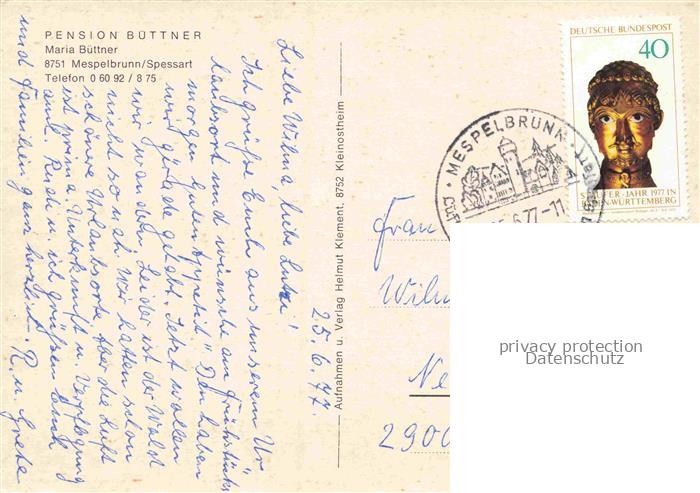 PENSION BÜTTNER
Maria Büttner
8751 Mespelbrunn/Spessart
Telefon 0 60 92 / 8 75
25.6.77.
Liebe Wilma, liebe Luzi!
Ich grüße Euch aus unserem Ur-
laubsort und wünsche am Frühstücks
morgen "Guten Appetit". Den haben
wir gerade gehabt. Jetzt wollen
wir wandern. Leider ist der Wald
nicht so nah. Wir hatten schon
schönere Urlaubsorte. Aber die Luft
ist prima. Unterkunft u. Verpflegung
auch. Rud. u. ich grüßen Euch
und Familien ganz herzlich. R. u. Grete
Aufnahmen u. Verlag Helmut Klement, 8752 Kleinostheim
DEUTSCHE BUNDESPOST
40
STAUFER-JAHR 1977 IN
BADEN-WÜRTTEMBERG
MESPELBRUNN
6.77-11
Frau
Wilm
Ne
2900
privacy protection
Datenschutz